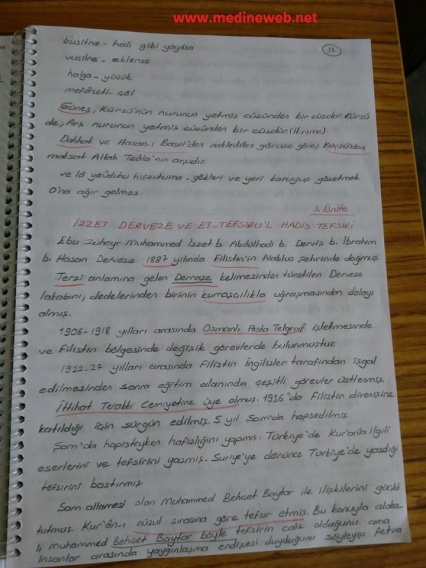 www.medineweb.net
busitne - hali gibi yayılsa
vusilne - eklense
halga - yüzük
mefazeti - çöl
Güneş, Kürsü'nün nurunun yetmiş cüzünden bir cüzdür. Kürsü
de, Arş nurunun yetmiş cüzünden bir cüzdür. (İkrime)
Dahhak ve Hasan-ı Basri'den nakledilen görüşe göre; Kürsü'den
maksat Allah Teâlâ'nın arşıdır.
ve la yeûduhu hıfzuhuma - gökleri ve yeri koruyup gözetmek
O'na ağır gelmez.
3. Ünite
İZZET DERVEZE VE ET-TEFSİRU'L HADİS TEFSİRİ
Ebu Zuheyr Muhammed İzzet b. Abdulhadi b. Derviş b. İbrahim
b. Hasan Derveze. 1887 yılında Filistin'in Nablus şehrinde doğmuş
Terzi anlamına gelen Derraze kelimesinden türetilen Derveze
lakabını, dedelerinden birinin kumaşçılıkla uğraşmasından dolayı
almış.
1906-1918 yılları arasında Osmanlı Posta Telgraf işletmesinde
ve Filistin bölgesinde değişik görevlerde bulunmuştur.
1922-27 yılları arasında Filistin İngilizler tarafından işgal
edilmesinden sonra eğitim alanında çeşitli görevler üstlenmiş.
İttihat Terakki Cemiyetine üye olmuş. 1936'da Filistin direnişine
katıldığı için sürgün edilmiş. 5 yıl Şam'da hapsedilmiş
Şam'da hapisteyken hafızlığını yapmış. Türkiye'de Kur'anla ilgili
eserlerini ve tefsirini yazmış. Suriye'ye dönünce Türkiye'de yazdığı
tefsirini bastırmış.
Şam allamesi olan Muhammed Behcet Baytar ile ilişkilerini güçlü
tutmuş. Kur'ân-ı nüzul sırasına göre tefsir etmiş. Bu konuyla alaka-
lı Muhammed Behcet Baytar böyle tefsirin caiz olduğunu ama
insanlar arasında yaygınlaşma endişesi duyduğunu söyleyip fetva